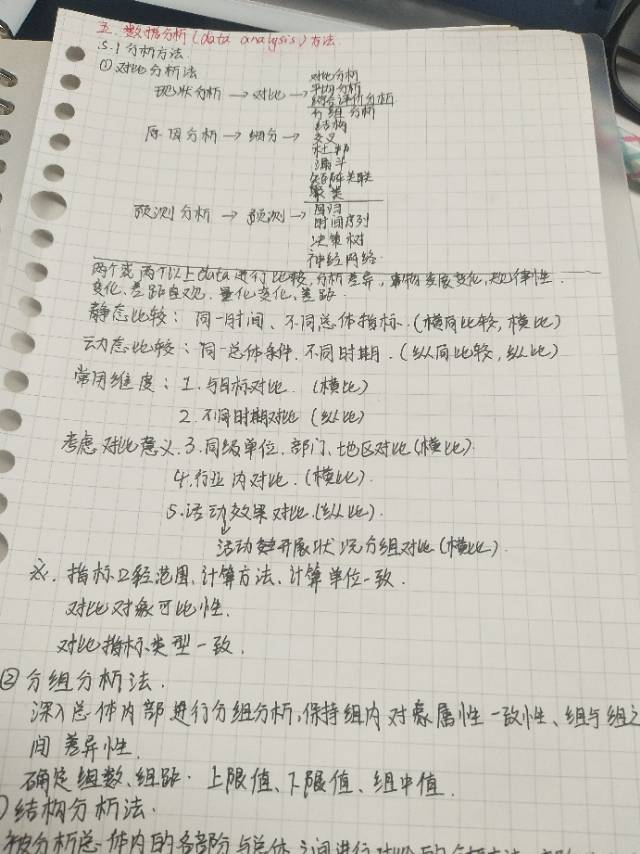 五. 数据分析(data analysis)方法.
5.1 分析方法
① 对比分析法
对比分析
现状分析 → 对比 → 平均分析
综合评价分析
分组分析
结构
原因分析 → 细分 → 交叉
杜邦
漏斗
矩阵关联
聚类
预测分析 → 预测 → 回归
时间序列
决策树
神经网络
两个或两个以上data进行比较,分析差异,事物发展变化,规律性.
变化、差距直观、量化变化、差距.
静态比较: 同一时间、不同总体指标.(横向比较,横比)
动态比较: 同一总体条件.不同时期.(纵向比较,纵比)
常用维度: 1.与目标对比 (横比)
2.不同时期对比 (纵比)
考虑对比意义.3.同级单位、部门、地区对比(横比)
4.行业内对比.(横比)
5.活动效果对比.(纵比).
活动开展状况分组对比(横比).
※. 指标口径范围、计算方法、计算单位一致.
对比对象可比性.
对比指标类型一致.
② 分组分析法.
深入总体内部进行分组分析,保持组内对象属性一致性、组与组之
间差异性.
确定组数、组距. 上限值、下限值、组中值.
结构分析法.
被分析总体内的各部分与总体之间进行对比的分析方法